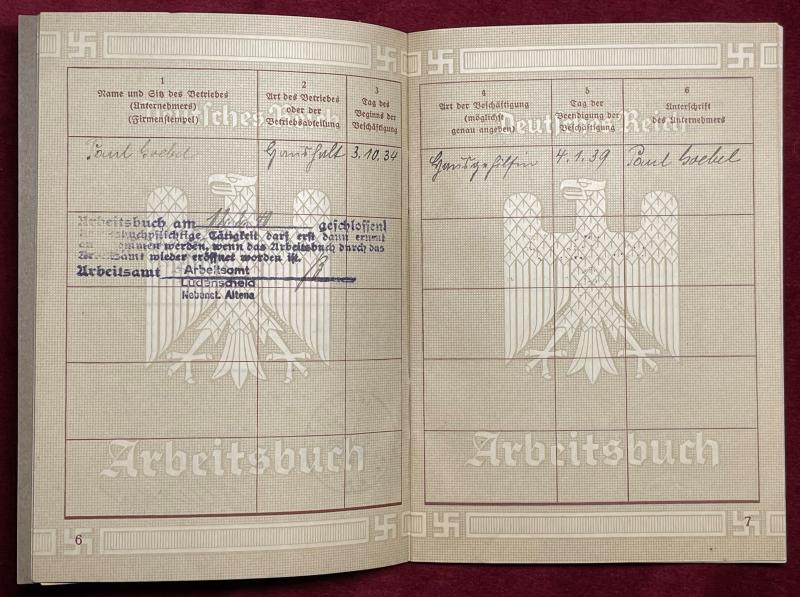 Deutsches Reich
1
Name und Sitz des Betriebes
(Unternehmers)
(Firmenstempel)
2
Art des Betriebes
oder der
Betriebsabteilung
3
Tag des
Beginns der
Beschäftigung
Paul Goebel
Haushalt
3.10.34
Arbeitsbuch am
geschlossen!
Arbeitsbuchpflichtige Tätigkeit darf erst dann erneut
aufgenommen werden, wenn das Arbeitsbuch durch das
Arbeitsamt wieder eröffnet worden ist.
Arbeitsamt
Arbeitsamt
Lüdenscheid
Nebenst. Altena
Arbeitsbuch
6
Deutsches Reich
4
Art der Beschäftigung
(möglichst
genau angeben)
5
Tag der
Beendigung der
Beschäftigung
6
Unterschrift
des Unternehmers
Hausgehilfin
4.1.39
Paul Goebel
Arbeitsbuch
7